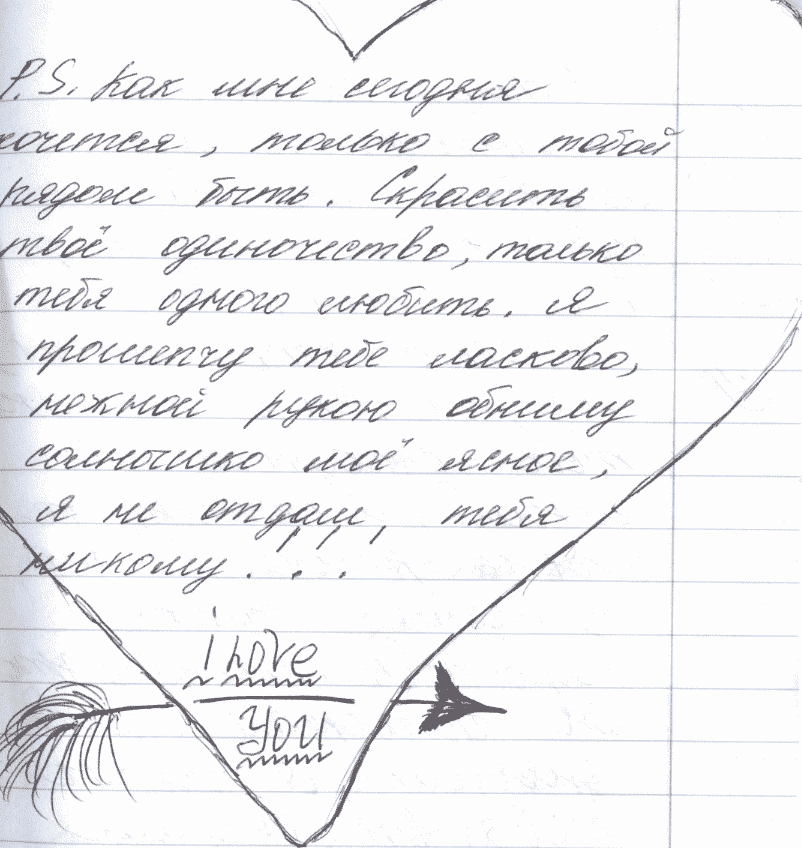 P.S. Как мне сегодня
хочется, только с тобой
рядом быть. Скрасить
твоё одиночество, только
тебя одного любить. Я
прошепчу тебе ласково,
нежной рукою обниму
солнышко моё ясное,
я не отдам, тебя
никому...!!!
i Love
You